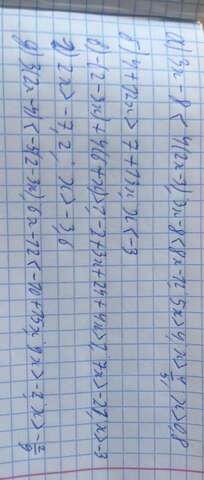 а) 3x - 8 < 4(2x-3); 3x-8x<8-12; 5x>4; x>4/5; x>0,8
б) 4+12x > 7+13x; x<-3
в) -(2-3x)+4(6+x)>1; -2+3x+24+4x>1; 7x>-21, x>-3
г) 2x > -7,2; x > -3,6
д) 3(2x-4) < -5(2-3x); 6x-12<-10+15x; 9x>-2; x>-2/9